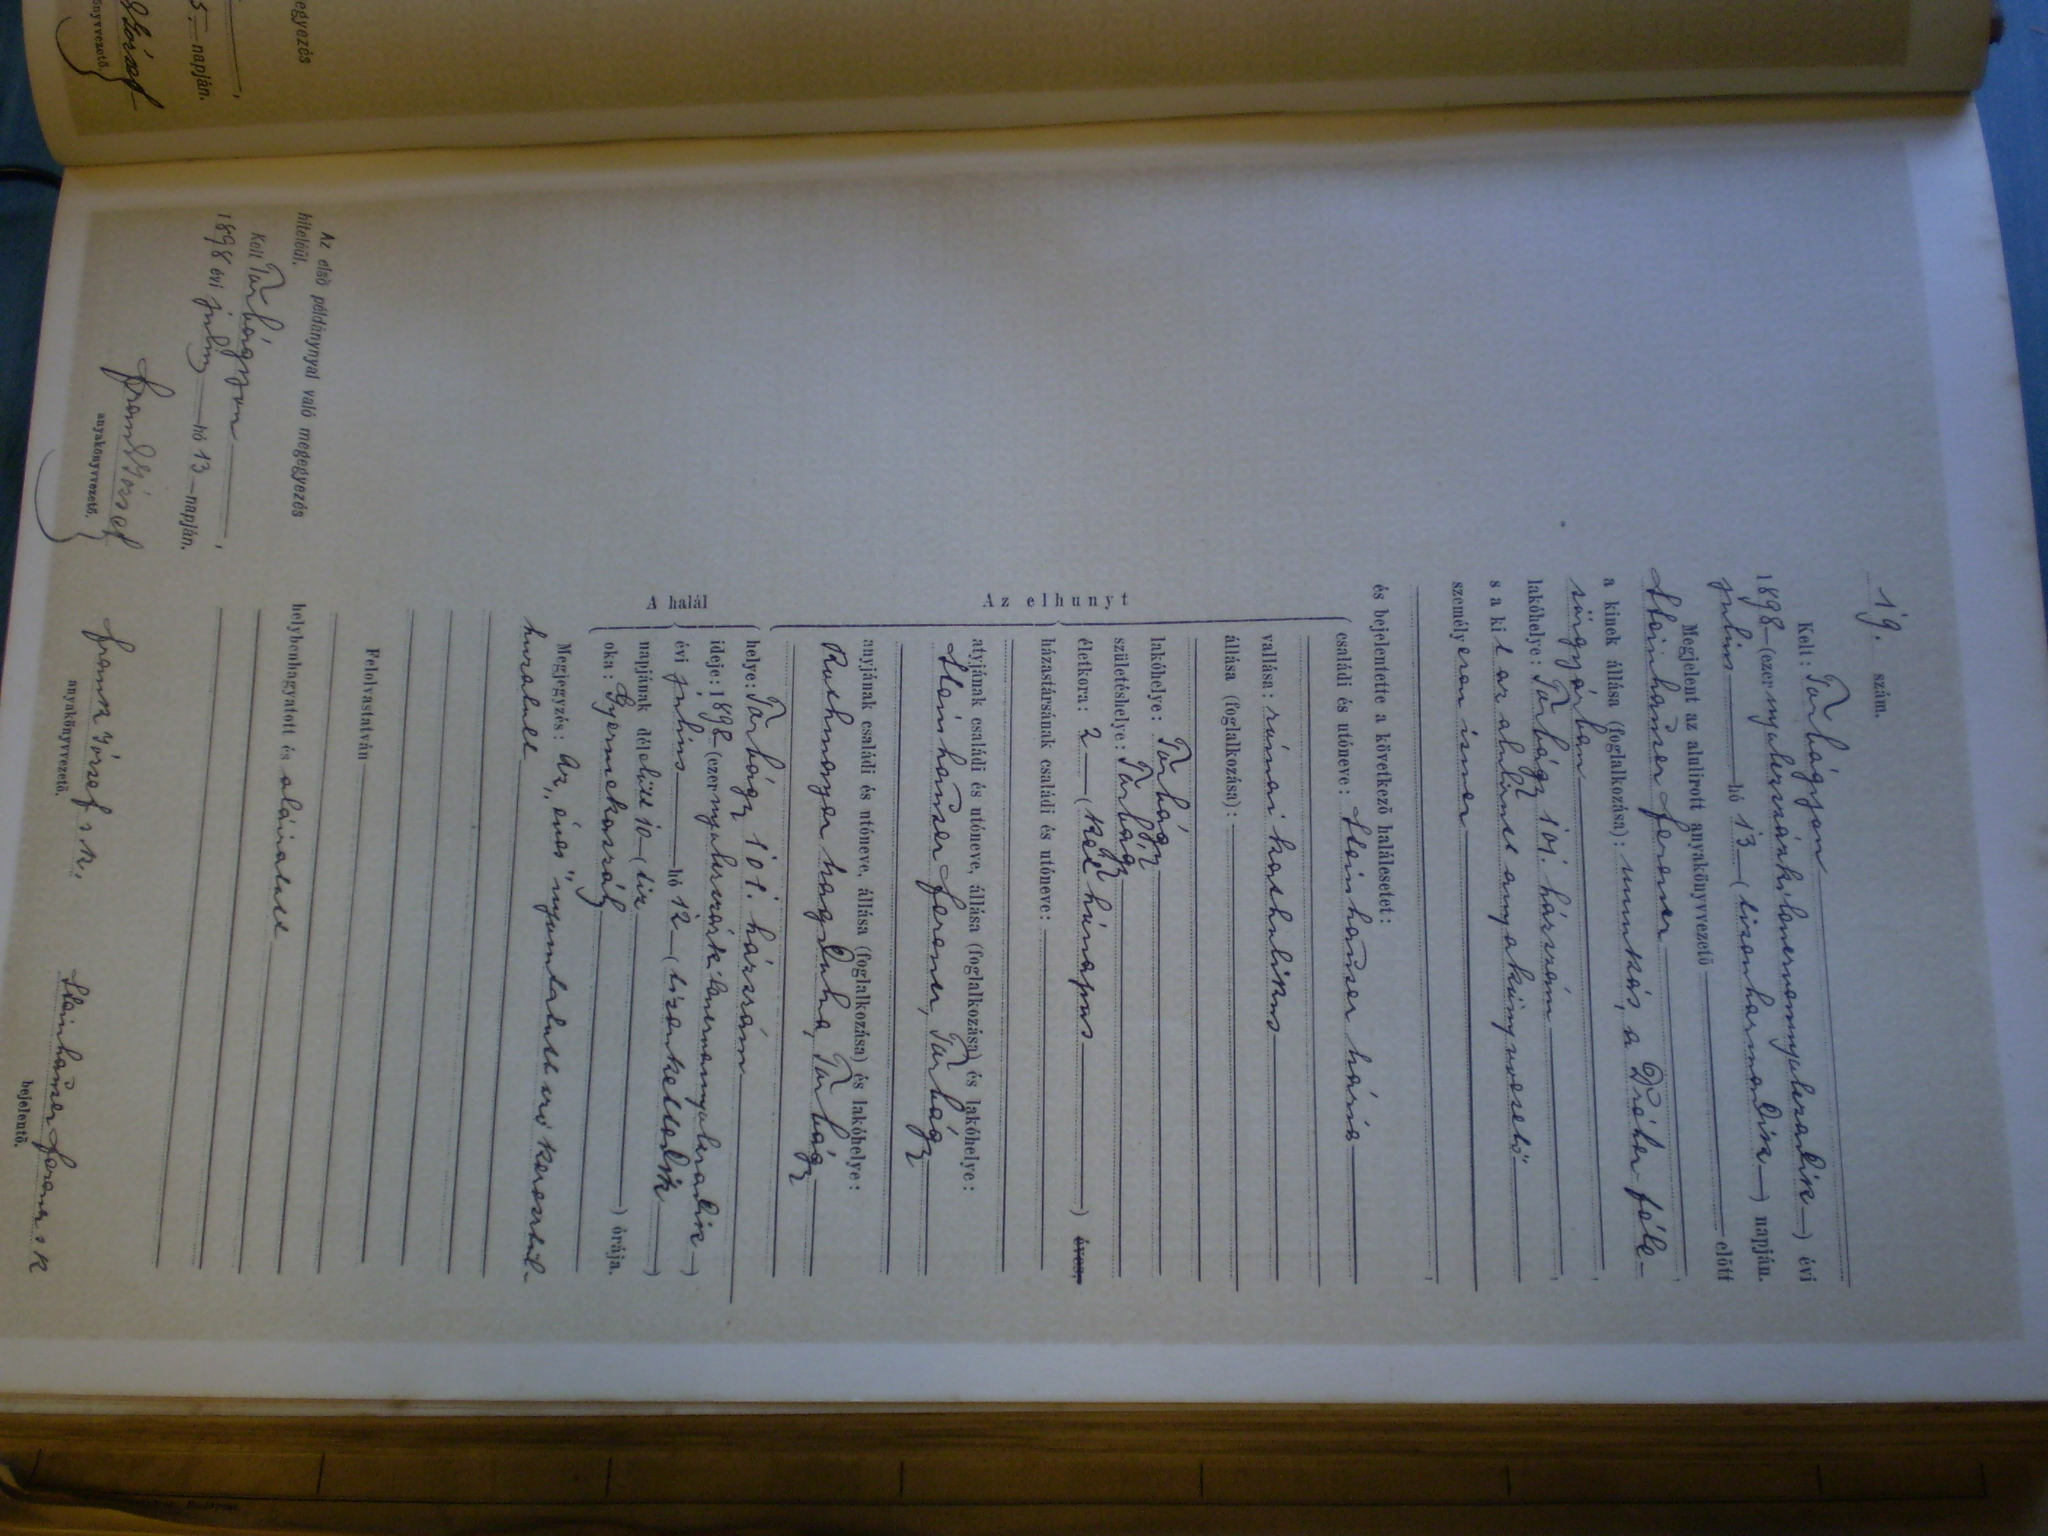 19. szám.
Kelt: Torbágyon
1898 (ezernyolczszázkilenczvennyolczadik) évi
julius hó 13 (tizenharmadik) napján.
Megjelent az alulirott anyakönyvvezető előtt
Steinhauser Ferencz,
a kinek állása (foglalkozása): munkás, a Dréher-féle
sörgyárban,
lakóhelye: Torbágy 101. házszám,
s a kit az alulirott anyakönyvvezető
személyesen ismer
és bejelentette a következő halálesetet:
Az elhunyt
családi és utóneve: Steinhauser Mária
vallása: római katholikus
állása (foglalkozása):
lakóhelye: Torbágy
születéshelye: Torbágy
életkora: 2 (két hónapos) éves.
házastársának családi és utóneve:
atyjának családi és utóneve, állása (foglalkozása) és lakóhelye:
Steinhauser Ferencz, Torbágy
anyjának családi és utóneve, állása (foglalkozása) és lakóhelye:
Magdolna, Torbágy
A halál
helye: Torbágy 101. házszám
ideje: 1898 (ezernyolczszázkilenczvennyolczadik)
évi julius hó 12 (tizenkettedik)
napjának délelőtt 10 (tíz) órája.
oka: Gyermekaszály
Megjegyzés: Az „éves" nyomtatott szó keresztül-
huzatott
Felolvastatván
helybenhagyatott és aláiratott
Frank József s. k.
anyakönyvvezető.
Steinhauser Ferencz s k
bejelentő.
Az első példánynyal való megegyezés
hiteléül.
Kelt Torbágyon,
1898 évi julius hó 13 napján.
Frank József
anyakönyvvezető.
egyezés
5 napján.
József
önyvvezető.